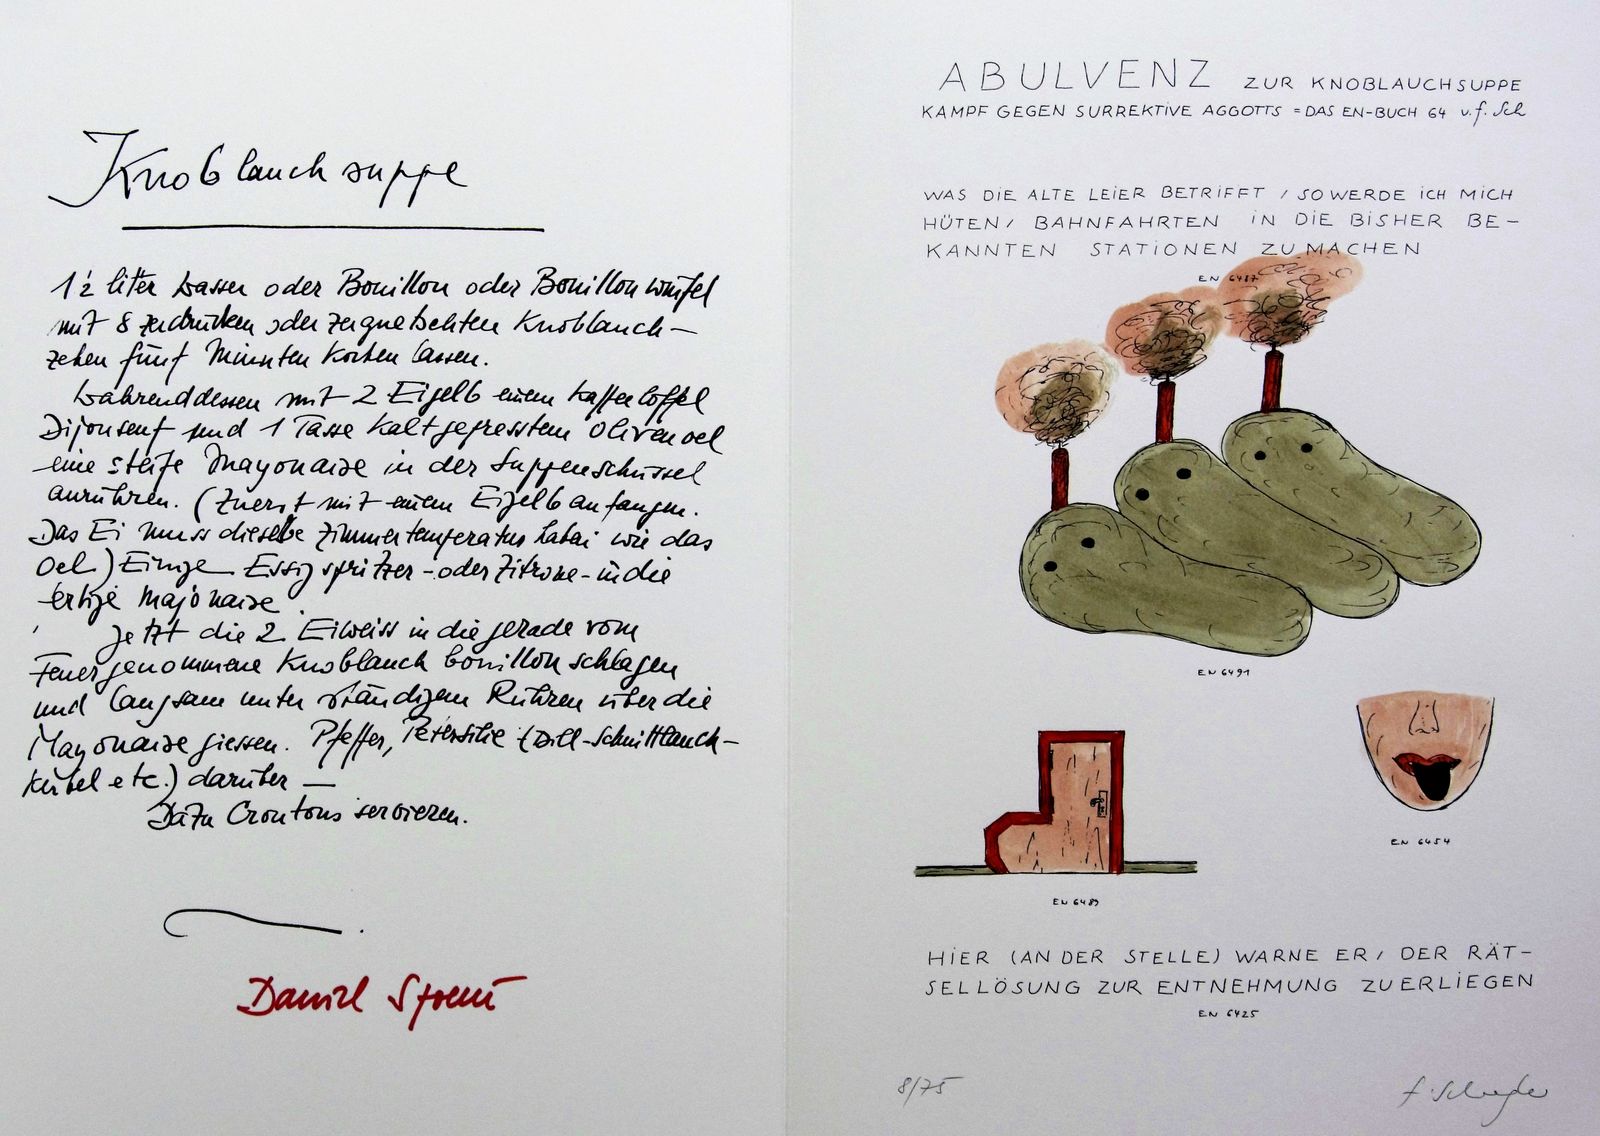 Knoblauchsuppe
1½ liter Wasser oder Bouillon oder Bouillonwürfel
mit 8 zerdrückten oder zerquetschten Knoblauch-
zehen fünf Minuten kochen lassen.
Währenddessen mit 2 Eigelb einem Kaffeelöffel
Dijonsenf und 1 Tasse kaltgepresstem Olivenoel
eine steife Mayonaise in der Suppenschüssel
anrühren. (Zuerst mit einem Eigelb anfangen.
Das Ei muss dieselbe Zimmertemperatur haben wie das
Oel.) Einige Essigspritzer - oder Zitrone - in die
fertige Majonaise.
Jetzt die 2 Eiweiss in die gerade vom
Feuer genommene Knoblauchbouillon schlagen
und langsam unter ständigem Rühren über die
Mayonaise giessen. Pfeffer, Petersilie (Dill-Schnittlauch-
Kerbel etc.) darüber —
Dazu Croutons servieren.
Daniel Spoerri
ABULVENZ ZUR KNOBLAUCHSUPPE
KAMPF GEGEN SURREKTIVE AGGOTTS = DAS EN-BUCH 64 v. f. Sch
WAS DIE ALTE LEIER BETRIFFT / SO WERDE ICH MICH
HÜTEN / BAHNFAHRTEN IN DIE BISHER BE-
KANNTEN STATIONEN ZU MACHEN
EN 6487
EN 6491
EN 6454
EN 6489
HIER (AN DER STELLE) WARNE ER / DER RÄT-
SELLÖSUNG ZUR ENTNEHMUNG ZU ERLIEGEN
EN 6425
8/75